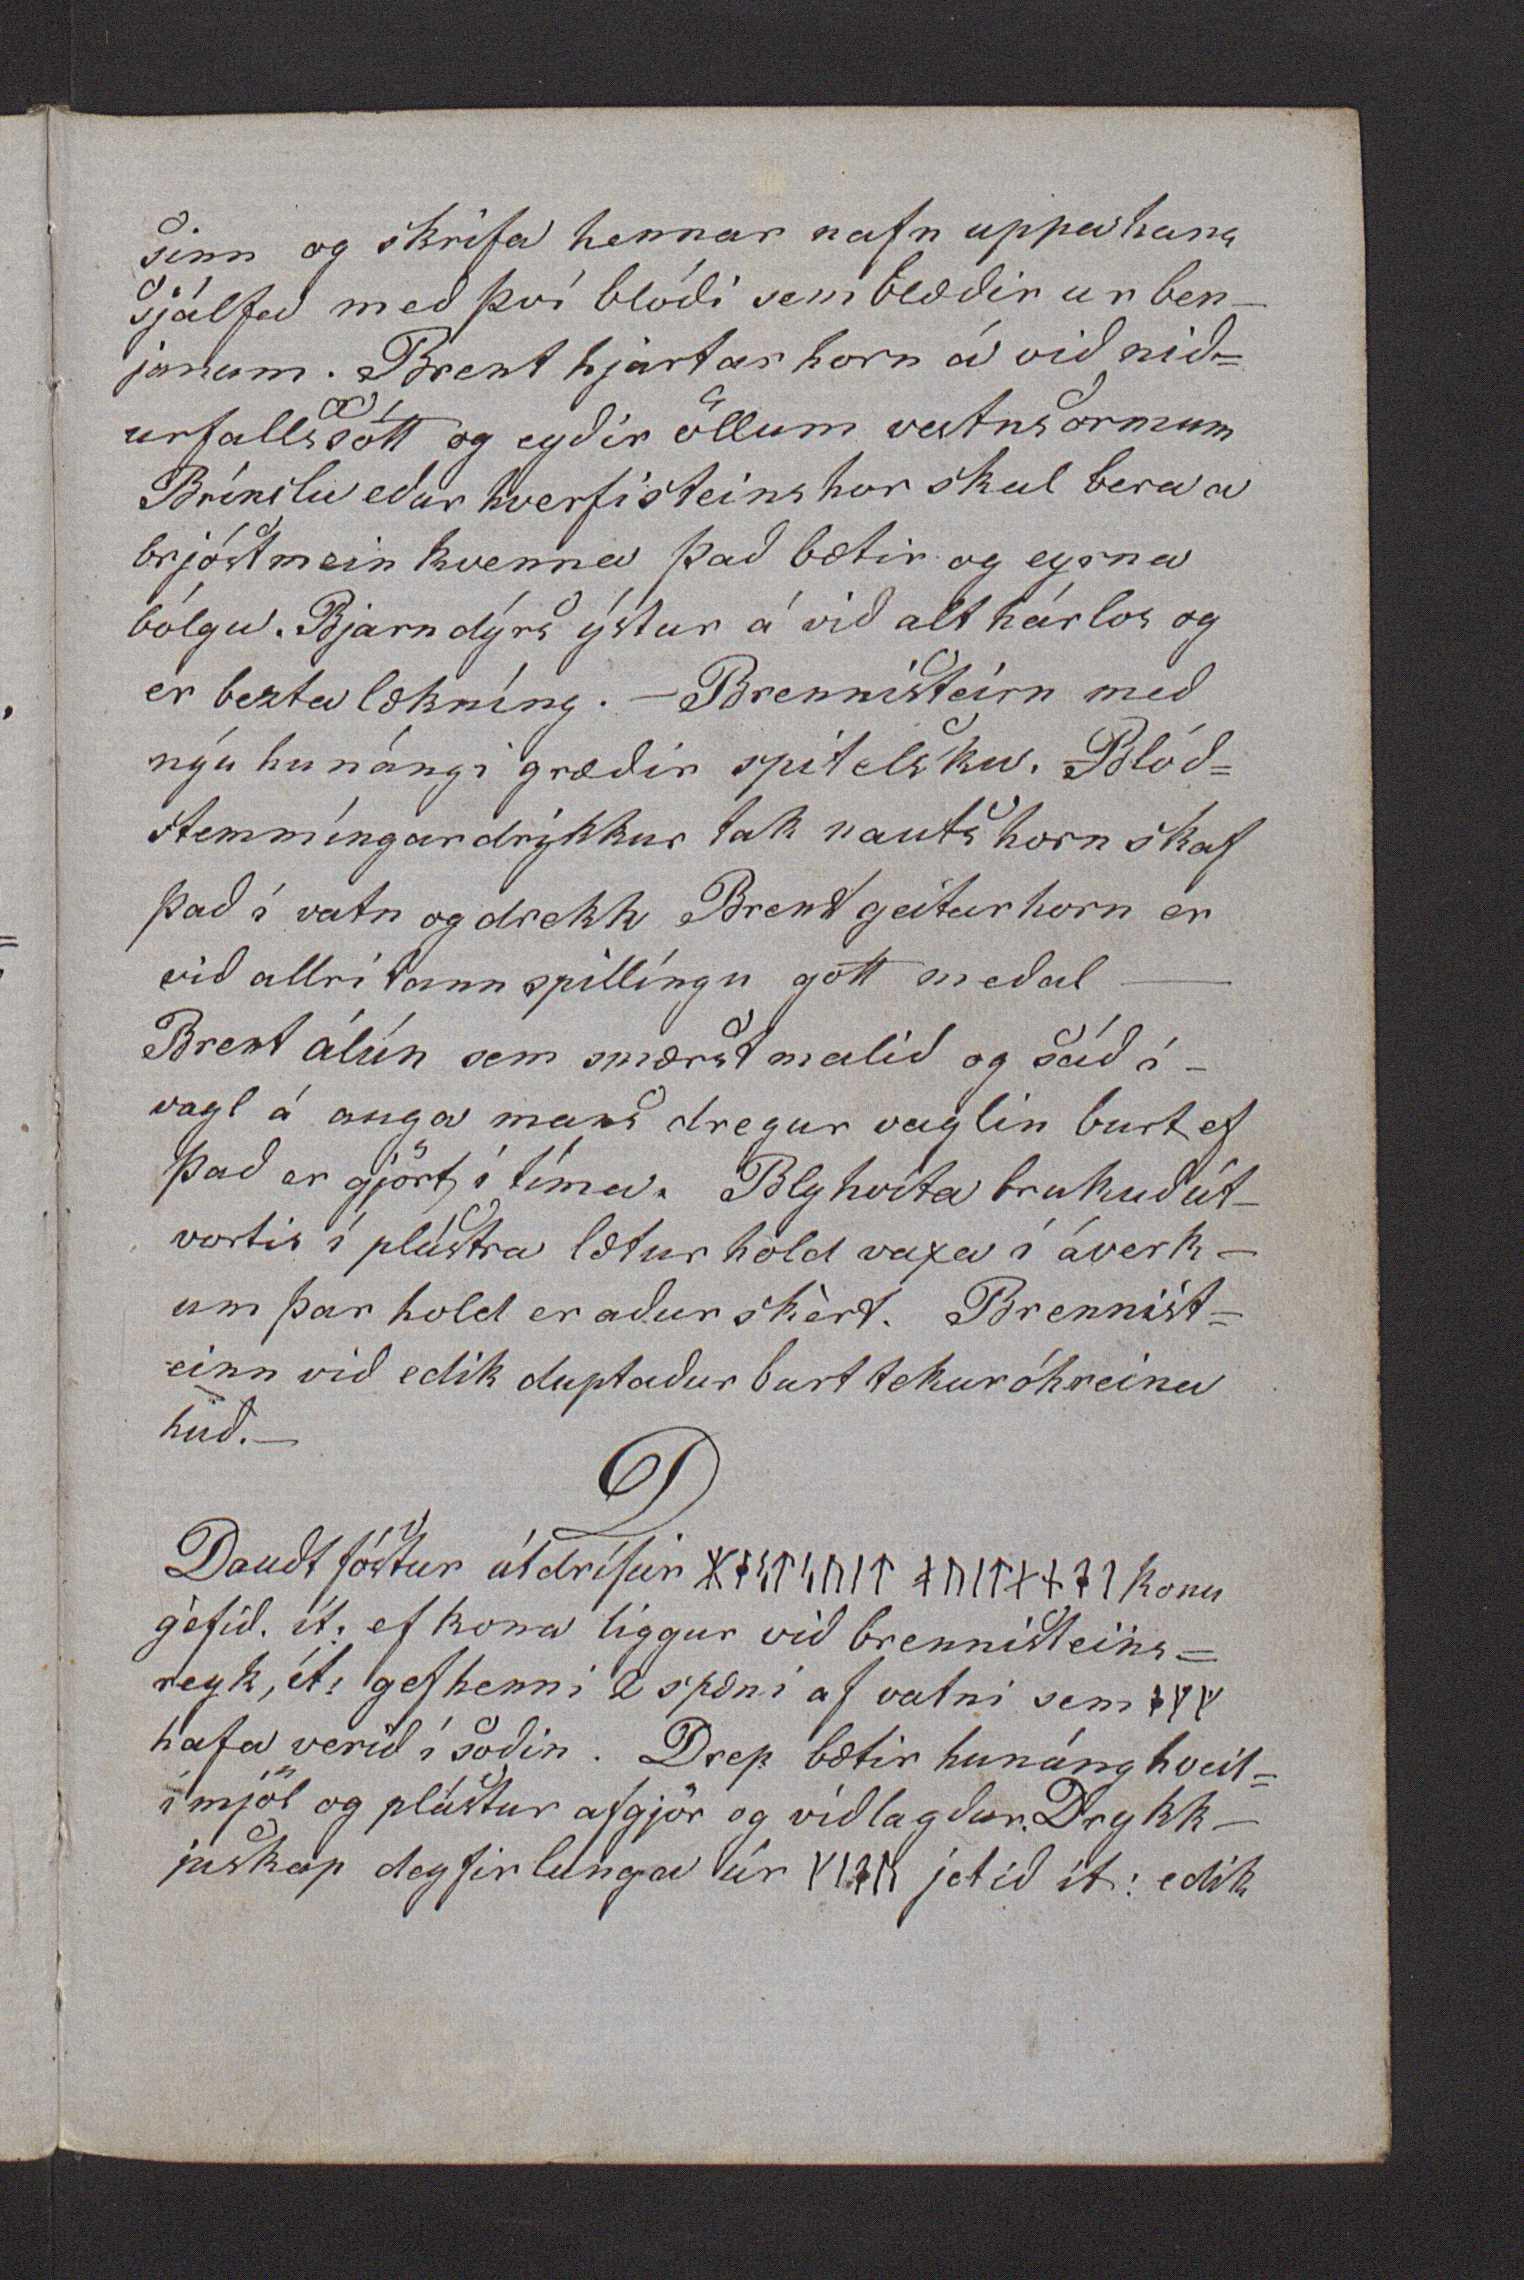 sinn og skrifa hennar nafn uppa hans
sjálfed med því blóði sem blæðir ur ben-
janum. Brent hjartar horn á við nið=
urfallssótt og eyðir öllum vatnsormum
Brínslu eður hverfisteins hor skal bera a
brjóstmein kvenna það bætir og eyrna
bólgu. Bjarndýrs ýstur á við alt hárlos og
er bezta lækníng. — Brennisteirn með
nýu hunángi græðir spitelsku. Blóð=
stemmíngardrykkur tak nautshorn skaf
það í vatn og drekk Brent geiturhorn er
við allri tannspillíngu gott meðal —
Brent álún sem smærst malið og sáð í -
vagl á auga mans dregur vaglin burt ef
það er gjört í tíma. Blyhvíta brukuð út-
vortis í plástra lætur hold vaxa í áverk-
um þar hold er aður skèrt. Brennist=
einn við edik duptaður burt tekur óhreina
húð. —
D
Dauðt fóstur útdrífur konu
géfið. ít: ef kona liggur við brennisteins=
reyk, ít: gef henni 2 spæni af vatni sem ᛂᚵᚵ
hafa verið í soðin. Drep bætir hunáng hveit=
imjöl og plástur afgjör og viðlagður. Drykk-
juskap deyfir lunga úr jetið ít: edik